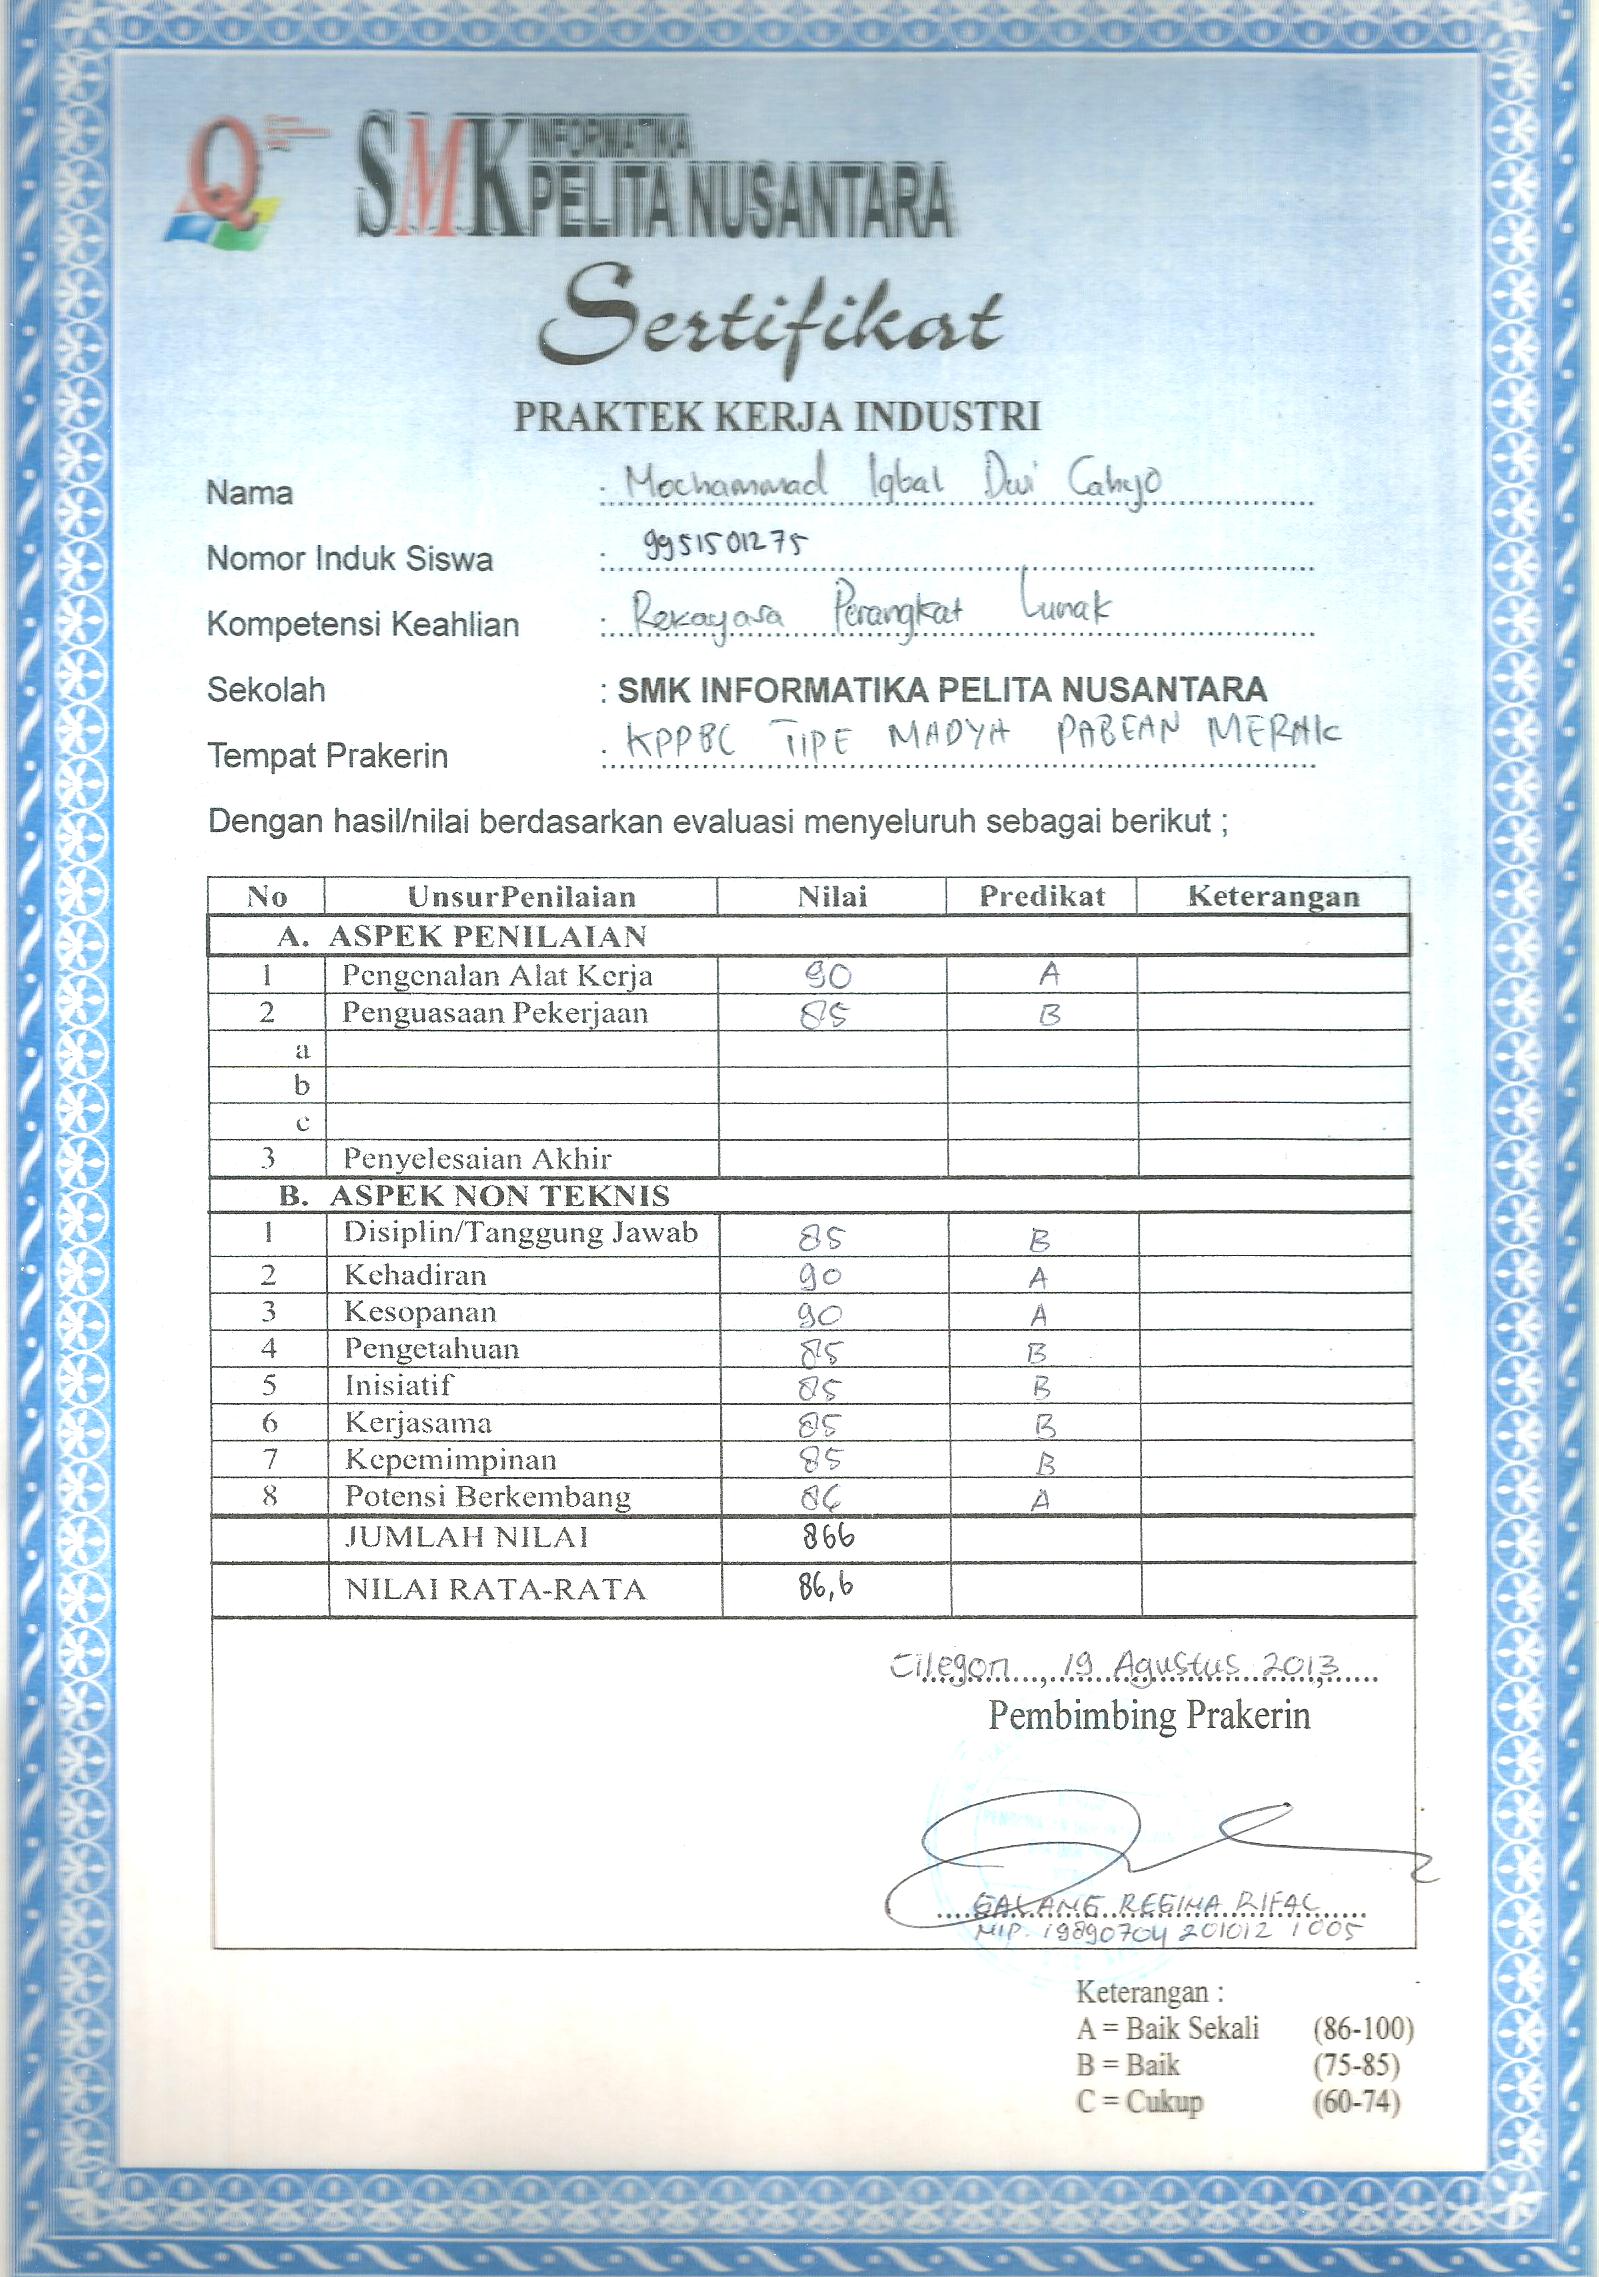 Q
SMK INFORMATIKA
PELITA NUSANTARA
Sertifikat
PRAKTEK KERJA INDUSTRI
Nama : Mochammad Iqbal Dwi Cahyo
Nomor Induk Siswa : 9951501275
Kompetensi Keahlian : Rekayasa Perangkat Lunak
Sekolah : SMK INFORMATIKA PELITA NUSANTARA
Tempat Prakerin : KPPBC TIPE MADYA PABEAN MERAK
Dengan hasil/nilai berdasarkan evaluasi menyeluruh sebagai berikut ;
No UnsurPenilaian Nilai Predikat Keterangan
A. ASPEK PENILAIAN
1 Pengenalan Alat Kerja 90 A
2 Penguasaan Pekerjaan 85 B
a
b
c
3 Penyelesaian Akhir
B. ASPEK NON TEKNIS
1 Disiplin/Tanggung Jawab 85 B
2 Kehadiran 90 A
3 Kesopanan 90 A
4 Pengetahuan 85 B
5 Inisiatif 85 B
6 Kerjasama 85 B
7 Kepemimpinan 85 B
8 Potensi Berkembang 86 A
JUMLAH NILAI 866
NILAI RATA-RATA 86,6
Cilegon, 19 Agustus 2013
Pembimbing Prakerin
GALANG REGINA RIFAL
NIP. 19890704 201012 1 005
Keterangan :
A = Baik Sekali (86-100)
B = Baik (75-85)
C = Cukup (60-74)